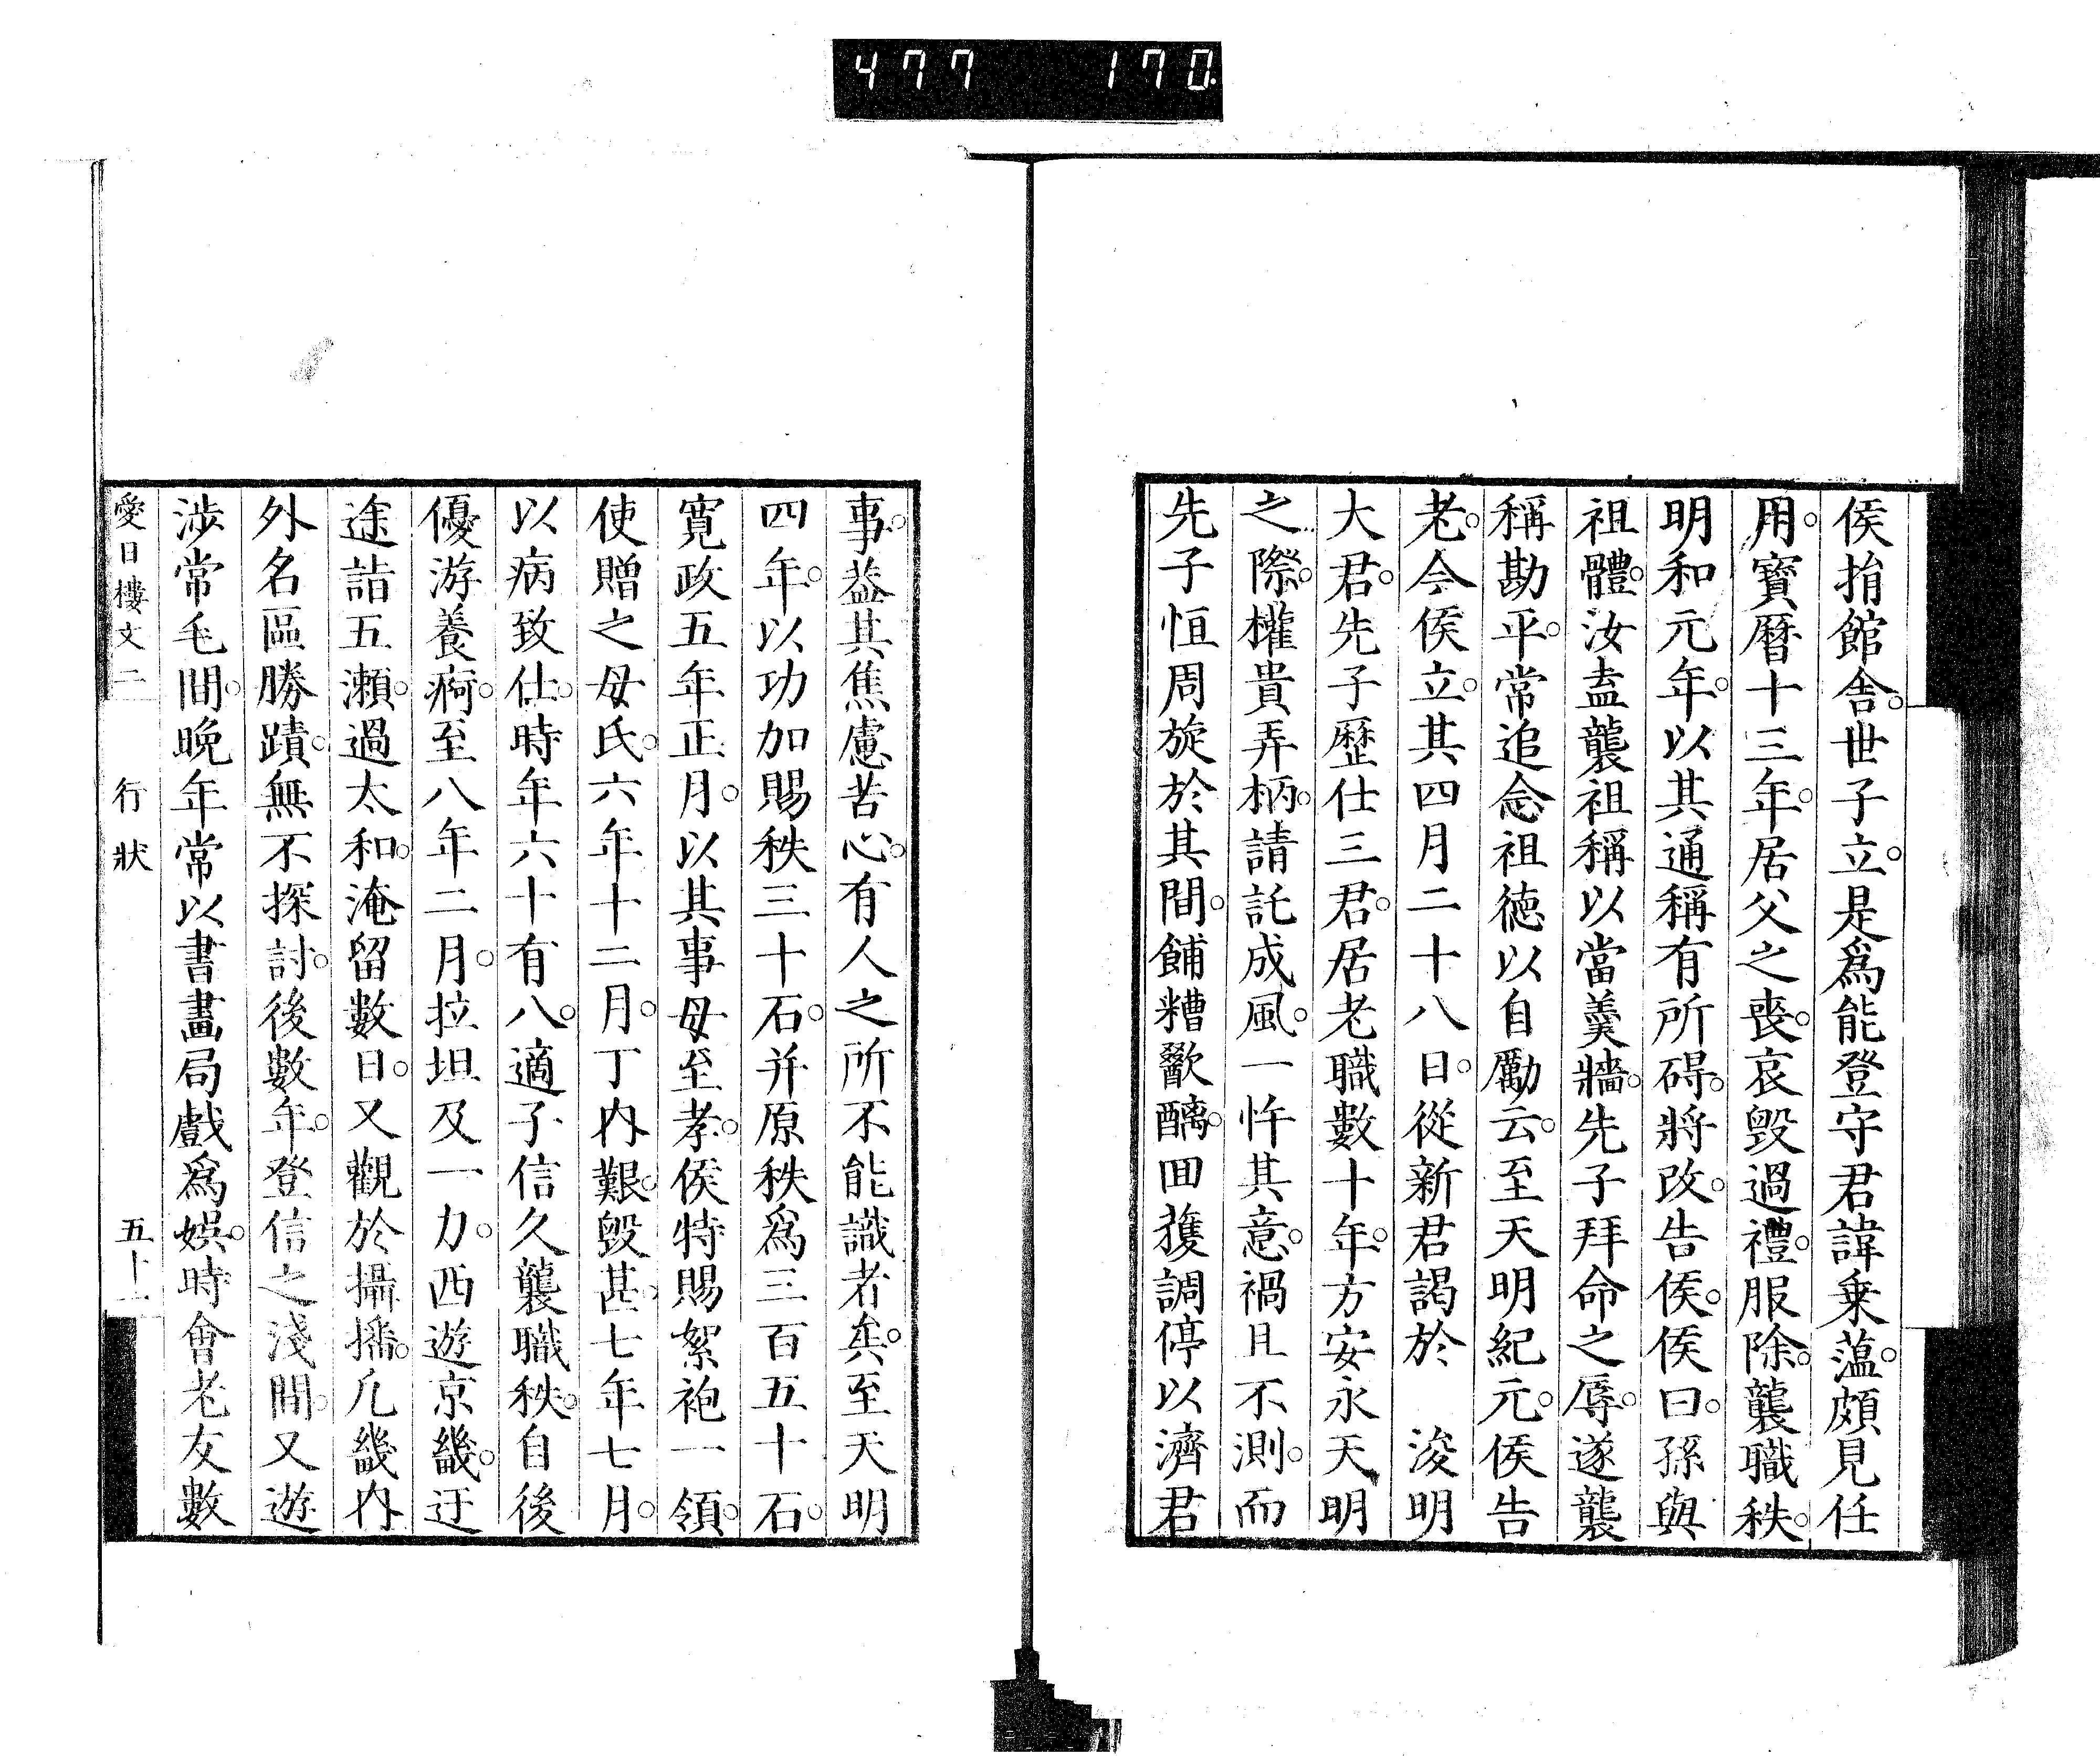 477 170
侯捐館舎。世子立。是爲能登守君諱乗薀。頗見任
用。寳暦十三年。居父之喪。哀毀過禮。服除。襲職秩。
明和元年。以其通稱有所碍。將改。告侯。侯曰。孫與
祖體。汝盍襲祖稱以當羹牆。先子拜命之辱。遂襲
稱勘平。常追念祖徳以自勵云。至天明紀元。侯告
老。今侯立。其四月二十八日。從新君謁於　浚明
大君。先子歷仕三君。居老職數十年。方安永天明
之際。權貴弄柄。請託成風。一忤其意。禍且不測。而
先子恒周旋於其間。餔糟歠醨。囬護調停以濟君
事。益其焦慮苦心。有人之所不能識者矣。至天明
四年。以功加賜秩三十石。并原秩爲三百五十石。
寛政五年正月。以其事母至孝。侯特賜絮袍一領。
使贈之母氏。六年十二月。丁内艱。毀甚。七年七月。
以病致仕。時年六十有八。適子信久襲職秩。自後
優游養痾。至八年二月。拉坦及一力。西遊京畿。迂
途詣五瀨。過太和。淹留數日。又觀於攝播。凡畿内
外名區勝蹟。無不探討。後數年。登信之淺間。又遊
渉常毛間。晩年常以書畫局戲爲娯。時會老友數
愛日樓文二　行狀　五十一